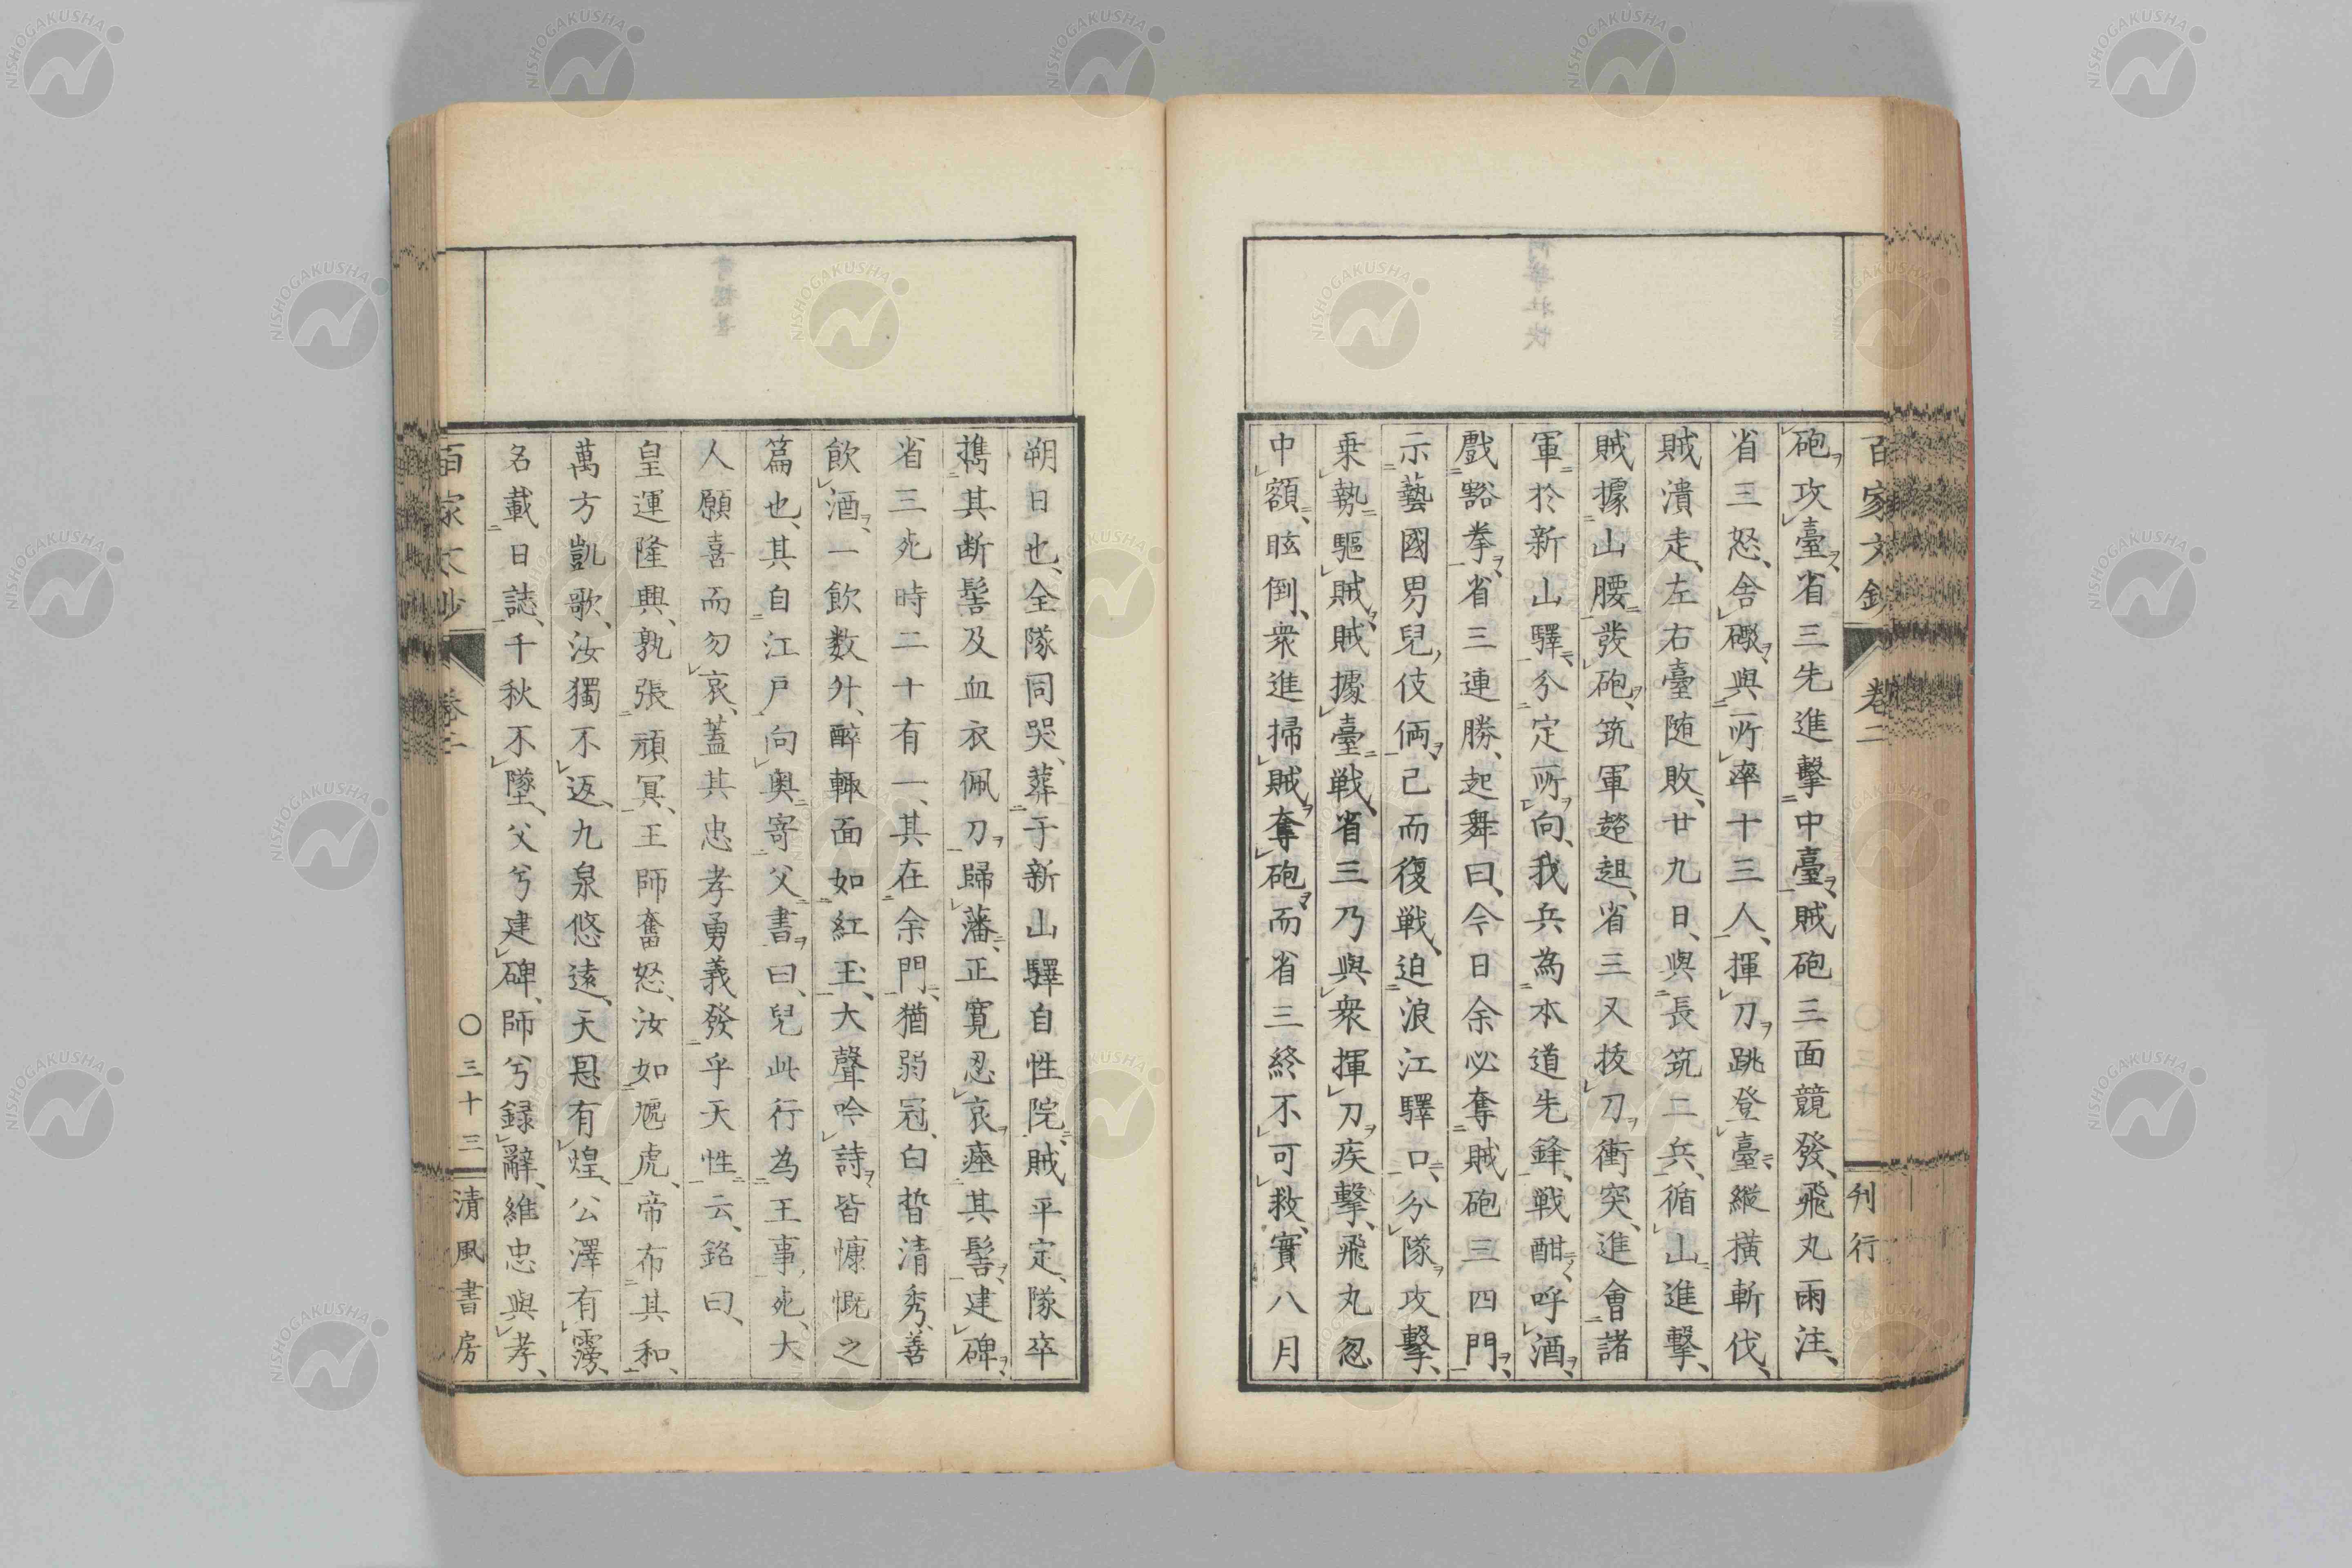 百家文鈔 卷二 刊行
砲攻臺省三先進擊中臺賊砲三面競發飛丸雨注、
省三怒舍礮與所率十三人揮刀跳登臺縱橫斬伐、
賊潰走、左右臺随敗、廿九日、與長筑二兵、循山進擊、
賊據山腰發砲、筑軍趑趄、省三又拔刀衝突、進會諸
軍於新山驛、分定所向、我兵為本道先鋒、戰酣呼酒、
戲豁拳、省三連勝、起舞曰、今日余必奪賊砲三四門、
示藝國男兒伎倆、已而復戰、迫浪江驛口、分隊攻擊、
乗勢驅賊、賊據臺戰、省三乃與衆揮刀疾擊、飛丸忽
中額、眩倒、衆進掃賊奪砲、而省三終不可救、實八月
朔日也、全隊同哭、葬于新山驛自性院、賊平定、隊卒
携其断髻及血衣佩刀歸藩、正寛忍哀瘞其髻、建碑、
省三死時二十有一、其在余門、猶弱冠、白皙清秀、善
飲酒、一飲数升、醉輒面如紅玉、大聲吟詩、皆慷慨之
篇也、其自江戸向奥寄父書曰、兒此行為王事死、大
人願喜而勿哀、蓋其忠孝勇義發乎天性云、銘曰、
皇運隆興、孰張頑冥、王師奮怒、汝如虓虎、帝布其和、
萬方凱歌、汝獨不返、九泉悠遠、天恩有煌、公澤有霶、
名載日誌、千秋不墜、父兮建碑、師兮録辭、維忠與孝、
百家文鈔 卷二 〇三十三 清風書房